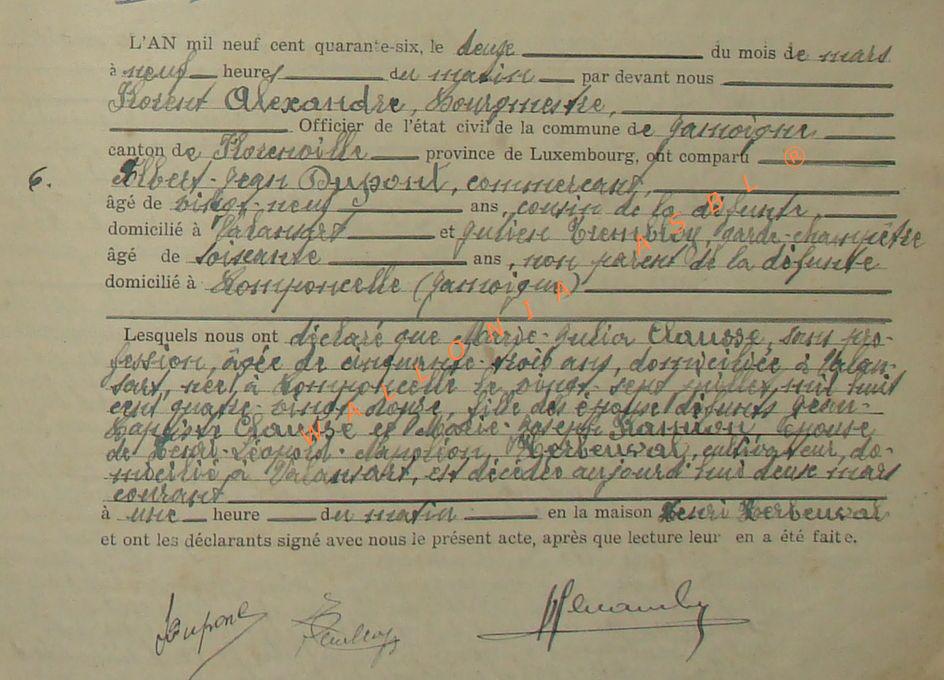 L'AN mil neuf cent quarante-six, le deux du mois de mars
à neuf heures du matin par devant nous
Florent Alexandre, Bourgmestre,
Officier de l'état civil de la commune de Jamoigne
canton de Florenville province de Luxembourg, ont comparu
6. Albert-Jean Dupont, commercant,
âgé de vingt-neuf ans, cousin de la défunte,
domicilié à Valansart et Julien Trembloy, Garde-champêtre
âgé de soixante ans, non parent de la défunte
domicilié à Romponcelle (Jamoigne)
Lesquels nous ont déclaré que Marie-Julia Clausse, sans pro-
fession, âgée de cinquante-trois ans, domiciliée à Valan-
sart, née à Romponcelle le vingt-sept juillet mil huit
cent quatre-vingt-douze, fille des époux défunts Jean-
Baptiste Clausse et Marie-Joseph épouse
de Henri-Léopold- Herbeuval, cultivateur, do-
micilié à Valansart, est décédée aujourd'hui deux mars
courant
à une heure du matin en la maison Henri Herbeuval
et ont les déclarants signé avec nous le présent acte, après que lecture leur en a été faite.
Dupont
WALLONIA ASBL ®